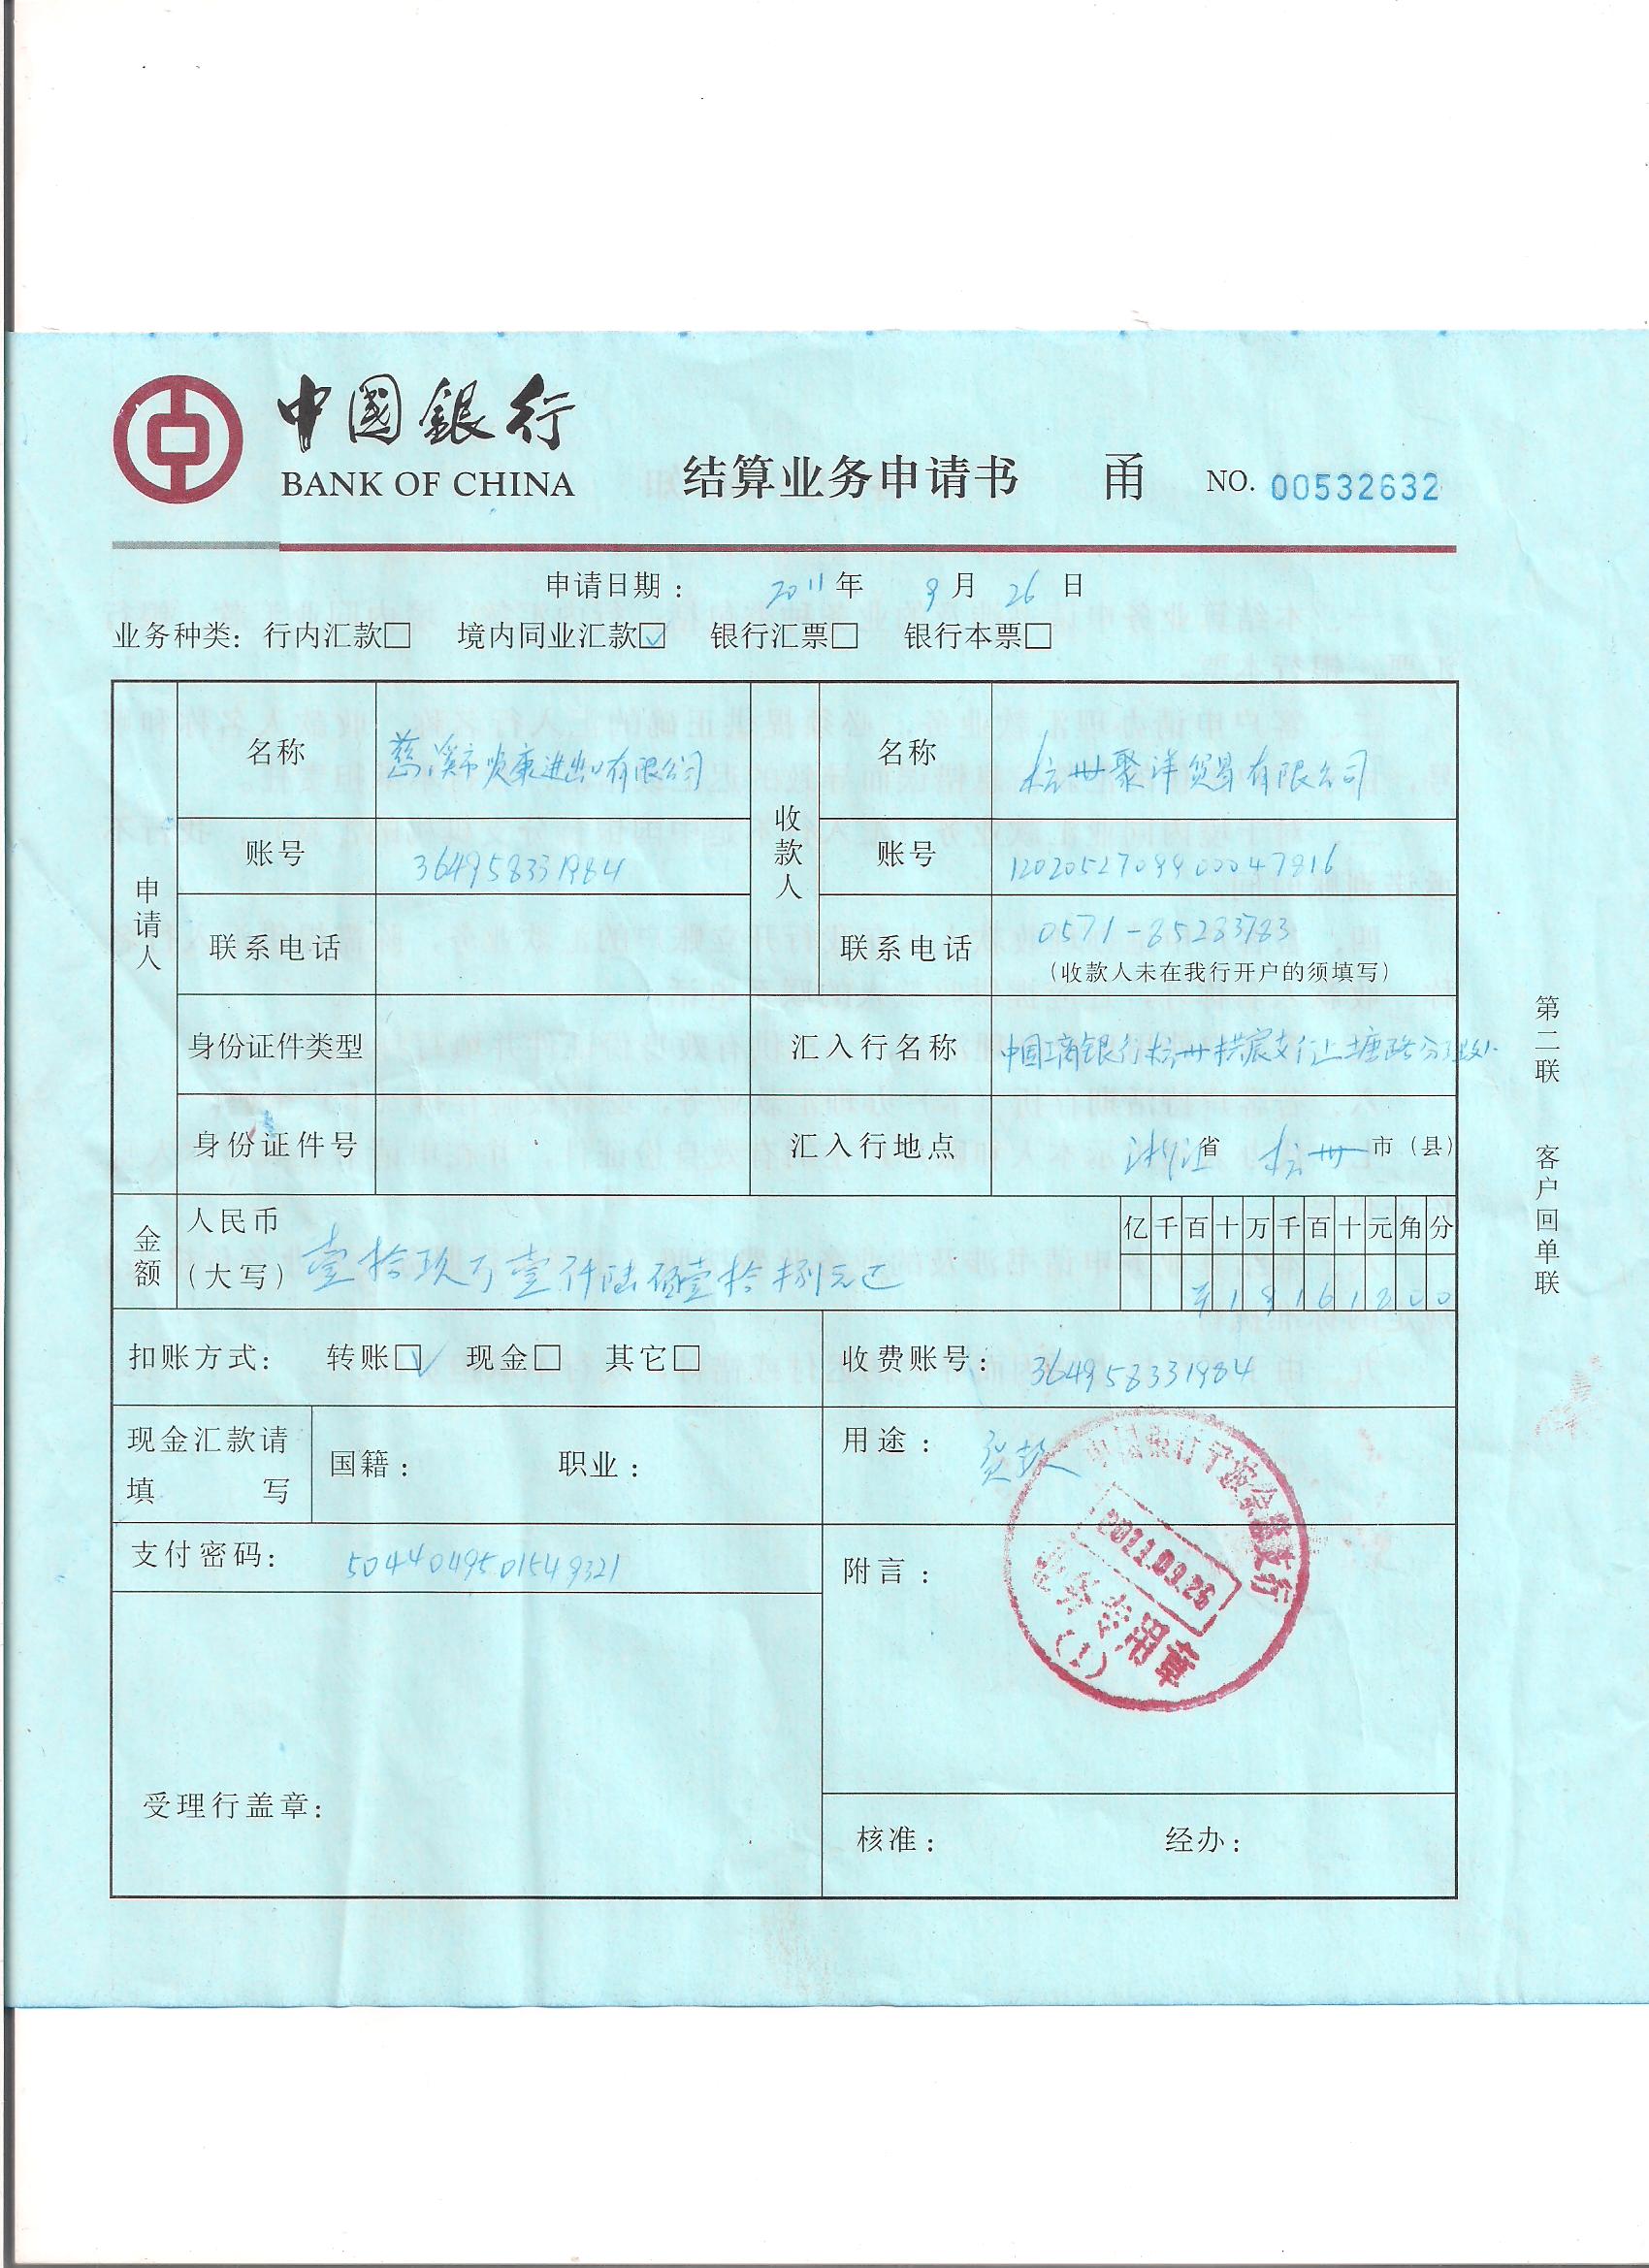 中國銀行
BANK OF CHINA
结算业务申请书 甬 NO. 00532632
申请日期： 2011 年 9 月 26 日
业务种类: 行内汇款□ 境内同业汇款☑ 银行汇票□ 银行本票□
申请人
名称 慈溪市顺康进出口有限公司
收款人
名称 杭州聚洋贸易有限公司
账号 364958331984
账号 1202052709900047816
联系电话
联系电话 0571-85283783
（收款人未在我行开户的须填写）
身份证件类型
汇入行名称 中国工商银行杭州拱宸支行上塘路分理处
身份证件号
汇入行地点 浙江省 杭州 市（县）
金额
人民币
（大写） 壹拾玖万壹仟陆佰壹拾捌元正
亿千百十万千百十元角分
¥19161800
扣账方式： 转账☑ 现金□ 其它□
收费账号： 364958331984
现金汇款请
填 写
国籍： 职业：
用途： 货款
支付密码: 5044049501549321
附言：
中国银行宁波余慈支行
2011.09.26
业务专用章
(1)
受理行盖章:
核准： 经办：
第二联 客户回单联